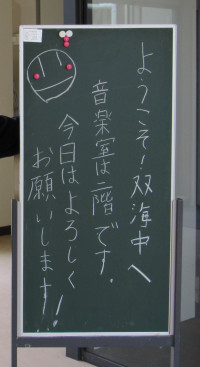 ようこそ！双海中へ
音楽室は二階です．
今日はよろしく
お願いします！！